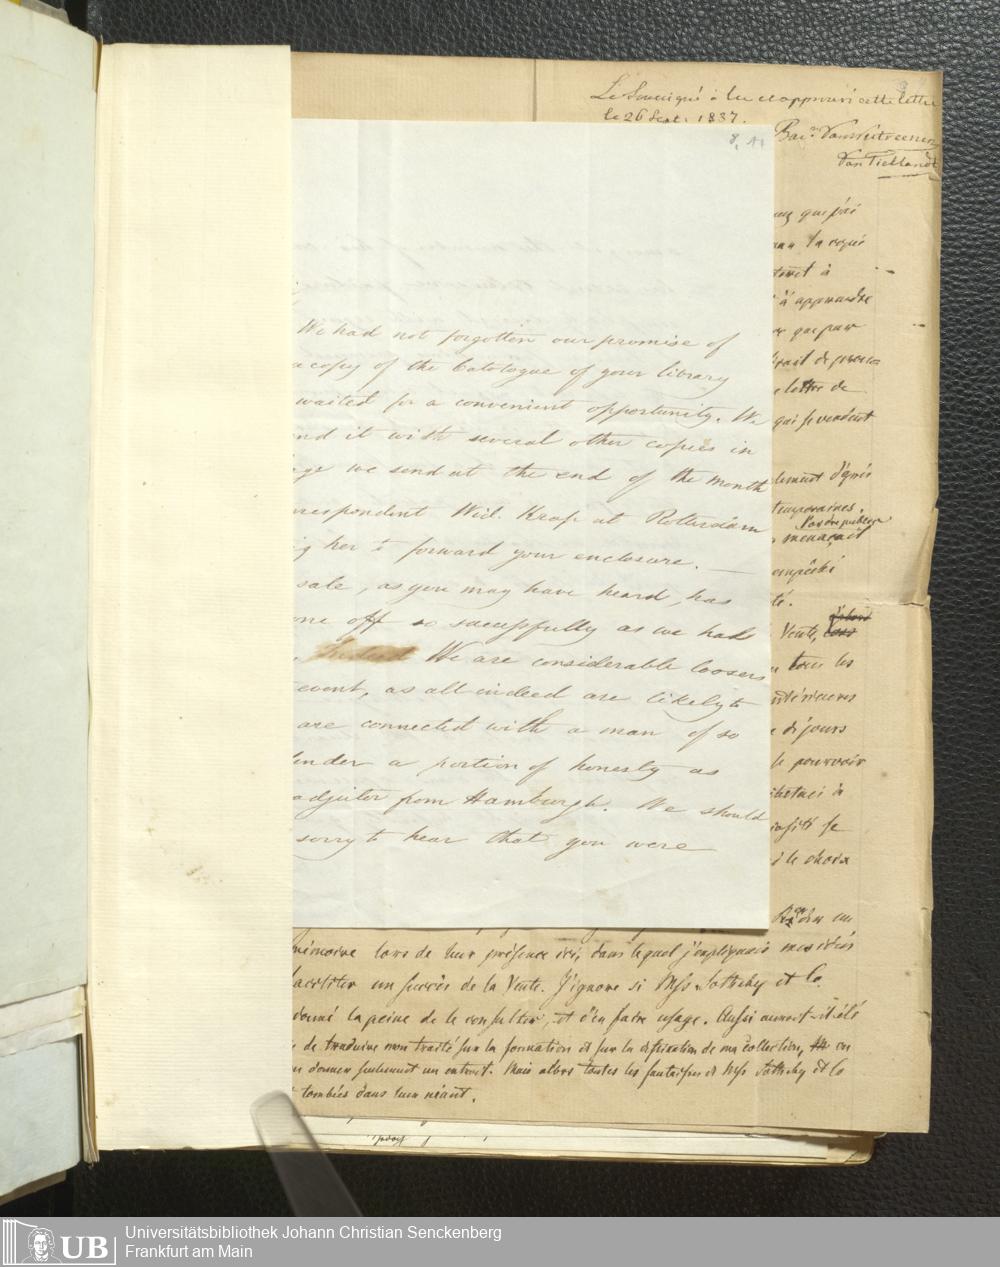 Le Soussigné a lu et approuvé cette lettre
le 26 Sept. 1837.
Van Tiellandt
8,
que j'ai
la copie
à
à apprendre
que par
lettre de
qui se vendent
We had not forgotten our promise of
a copy of the Catalogue of your library
waited for a convenient opportunity. We
nd it with several other copies in
ge we send at the end of the month
respondent Wid. Krap at Rotterdam
g her to forward your enclosure. —
sale, as you may have heard, has
one off so successfully as we had
We are considerable loosers
event, as all indeed are likely to
are connected with a man of so
lender a portion of honesty as
adjutor from Hamburgh. We should
sorry to hear that you were
d'après
temporaines.
menaçait
empêché
té.
Vente,
tous les
antérieures
de jours
le pourvoir
se
le choix
un
mémoire lors de leur présence ici, dans lequel j'expliquais mes idées
faciliter un succès de la Vente. J'ignore si Mss Sotheby et Co.
donné la peine de le consulter, et d'en faire usage. Aussi auroit-il été
de traduire mon traité sur la formation et sur la destination de ma collection, ou
en donner seulement un extrait. Mais alors toutes les fantaisies de Mss Sotheby et Co
tombées dans leur néant.
Universitätsbibliothek Johann Christian Senckenberg
UB Frankfurt am Main